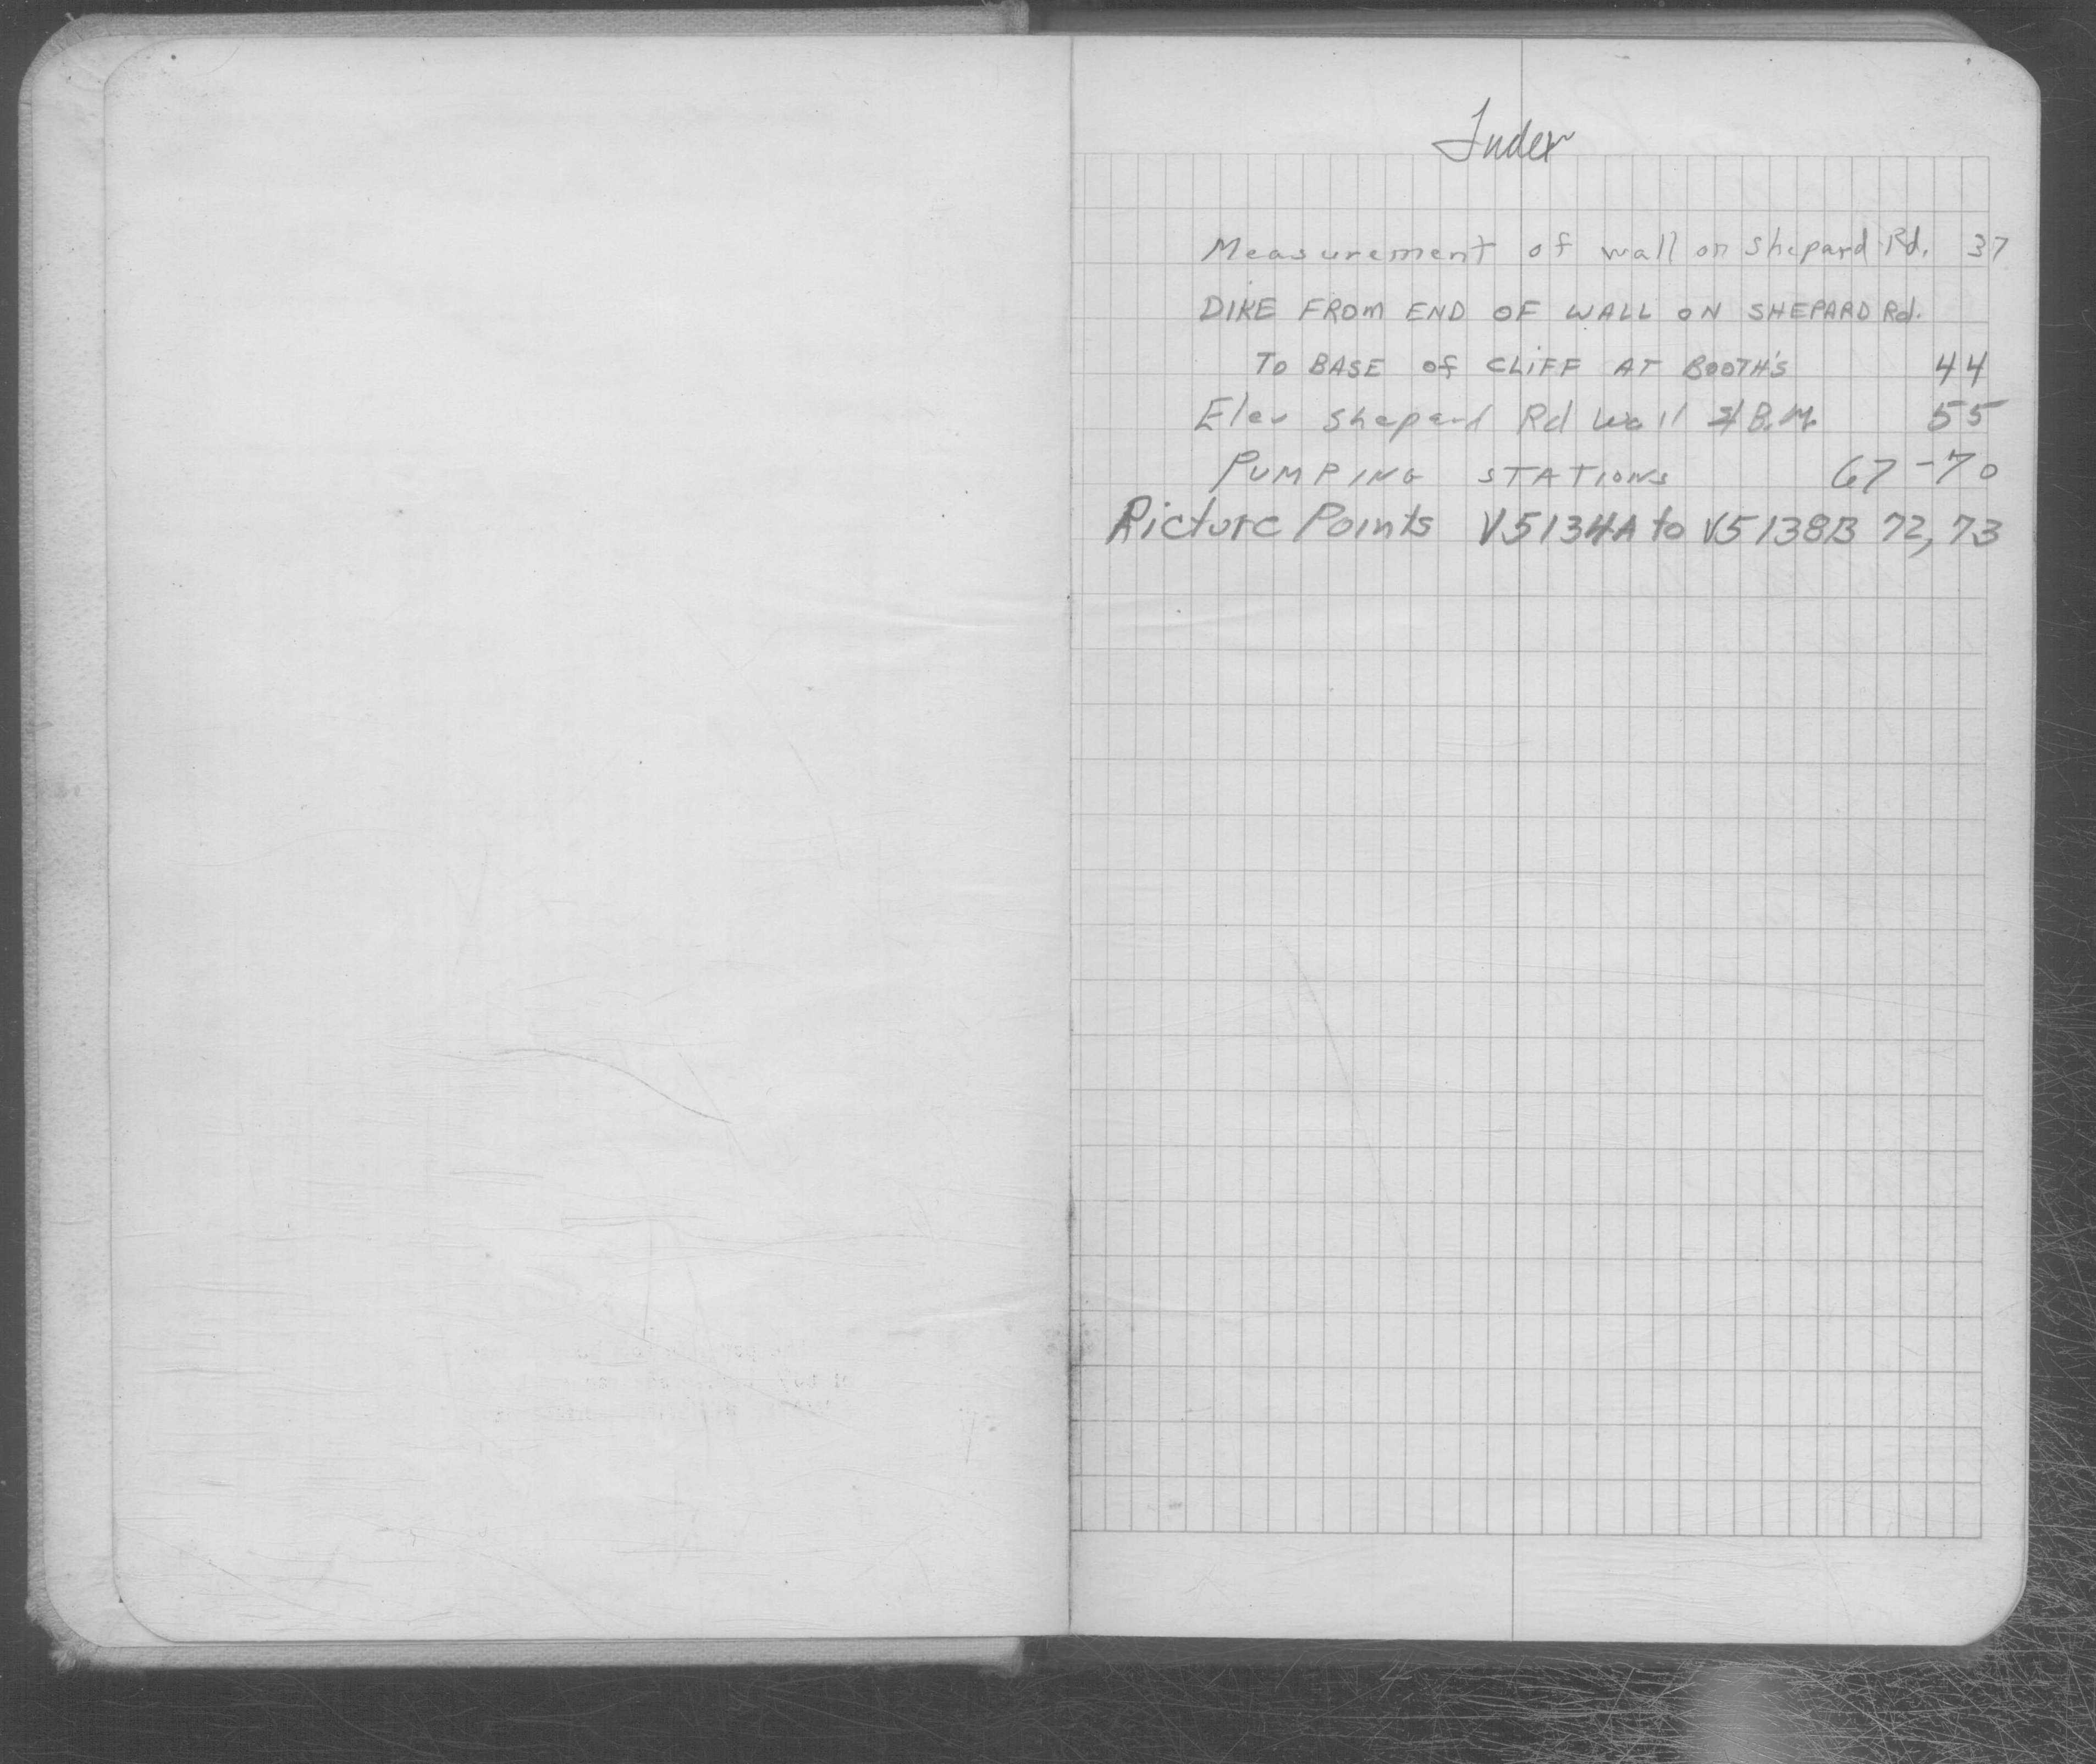 Index
Measurement of wall on Shepard Rd. 37
DIKE FROM END OF WALL ON SHEPARD Rd.
TO BASE of CLIFF AT BOOTH'S 44
Elev Shepard Rd Wall & B.M. 55
PUMPING STATIONS 67-70
Picture Points V5134A to V5138B 72, 73